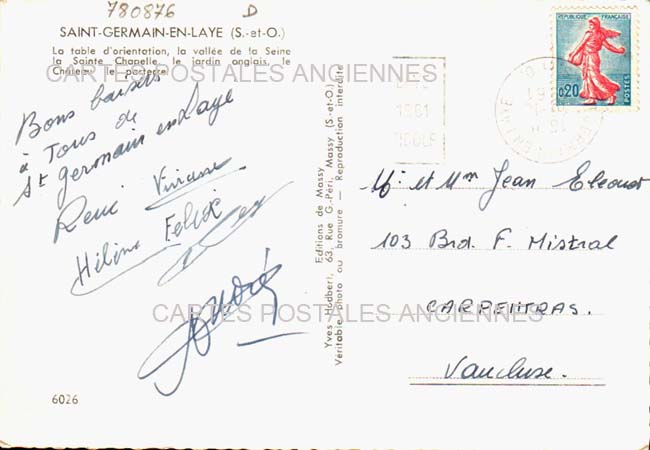 780876 D
SAINT-GERMAIN-EN-LAYE (S.-et-O.)
La table d'orientation, la vallée de la Seine
la Sainte Chapelle, le jardin anglais, le
Château, le parterre
CARTES POSTALES ANCIENNES
Bons baisers
à Tous de
St germain en Laye
René Viviane
Hélène Felix
André
6026
Editions de Massy
Yves Hudbert, 61 Rue G.-Péri, Massy (S.-et-O.)
Véritable photo au bromure — Reproduction interdite
REPUBLIQUE FRANÇAISE
0,20
POSTES
1961
EN LAYE
Mr et Mm Jean
103 Brd. F. Mistral
CARPENTRAS.
Vaucluse.
CARTES POSTALES ANCIENNES